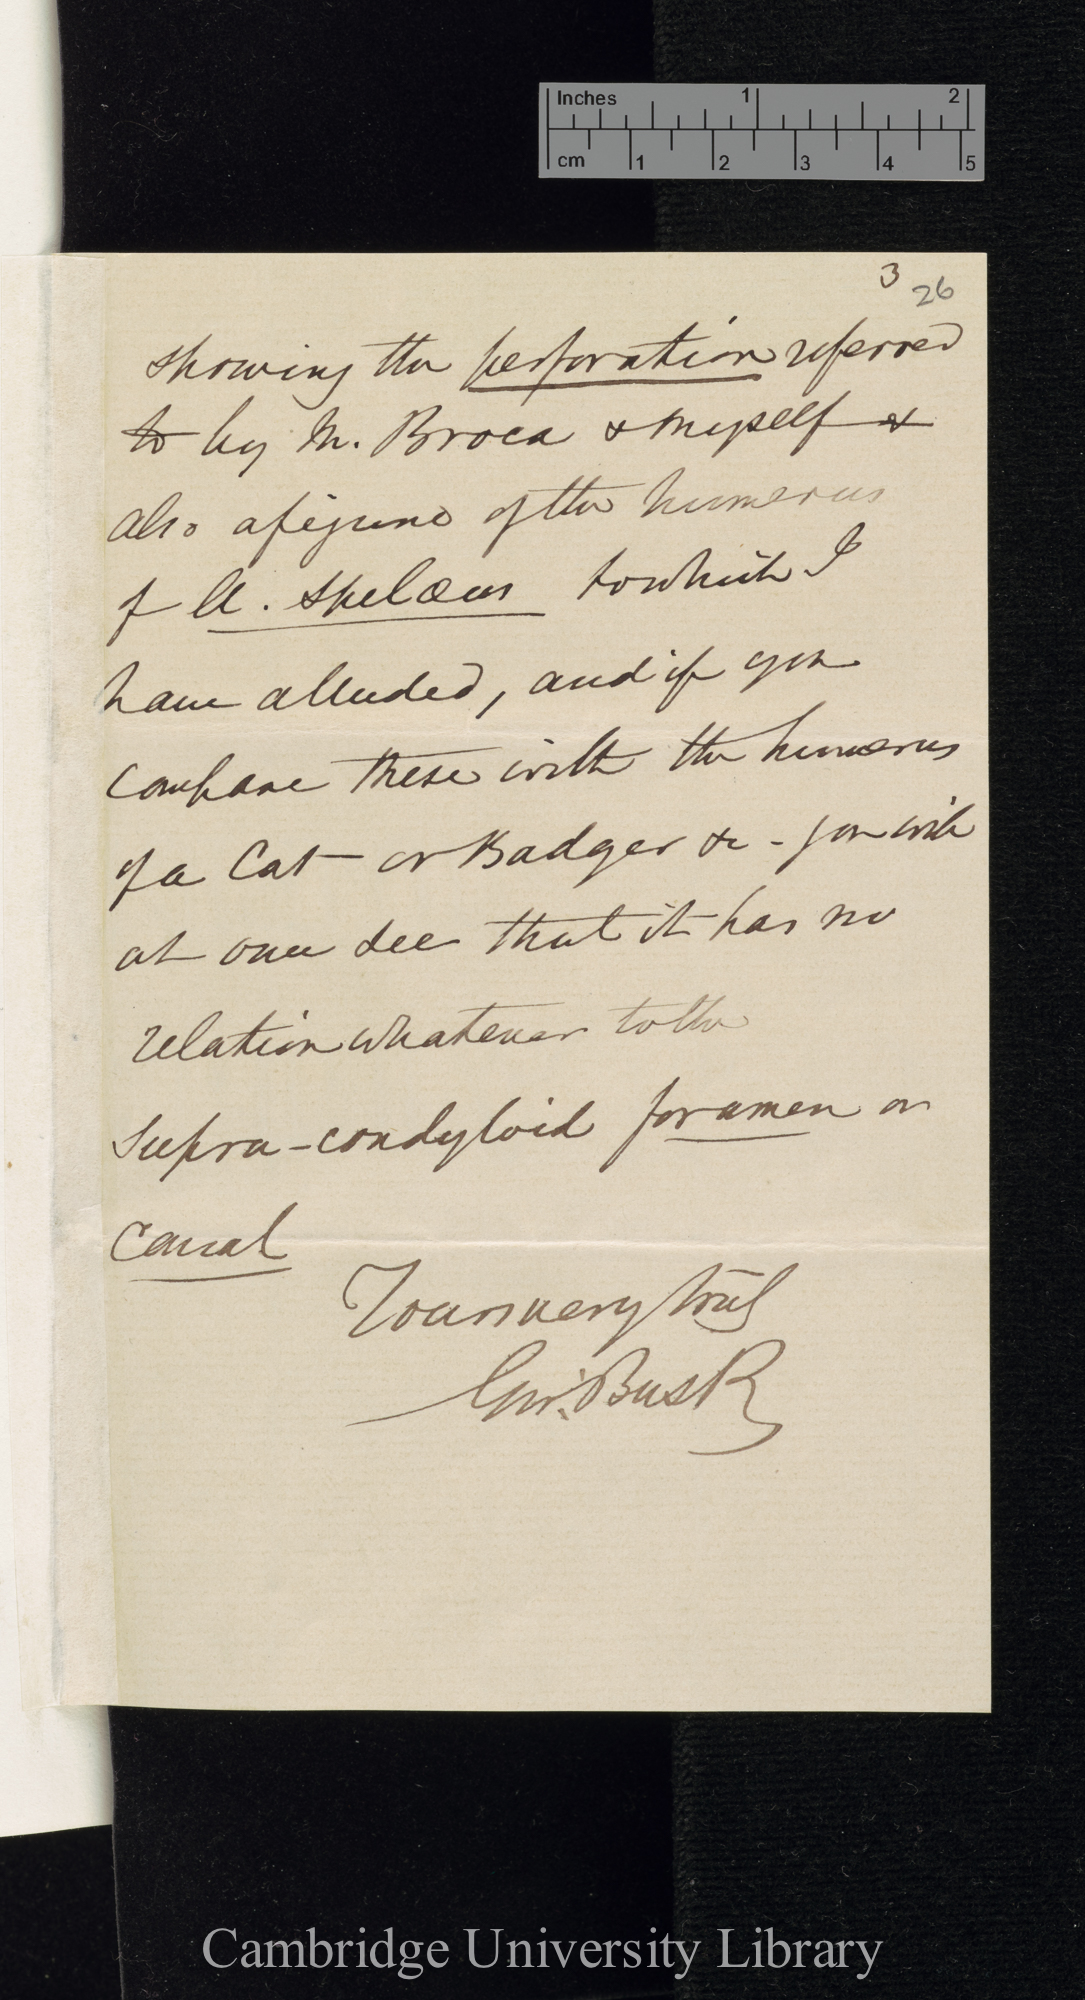 Inches 1 2
cm 1 2 3 4 5
3 26
showing the perforation referred
to by M. Broca & myself &
also a figure of the humerus
of U. spelæus to which I
have alluded, and if you
compare these with the humerus
of a Cat or Badger &c - you will
at once see that it has no
relation whatever to the
supra-condyloid foramen or
canal
Yours very truly
Geo. Busk
Cambridge University Library